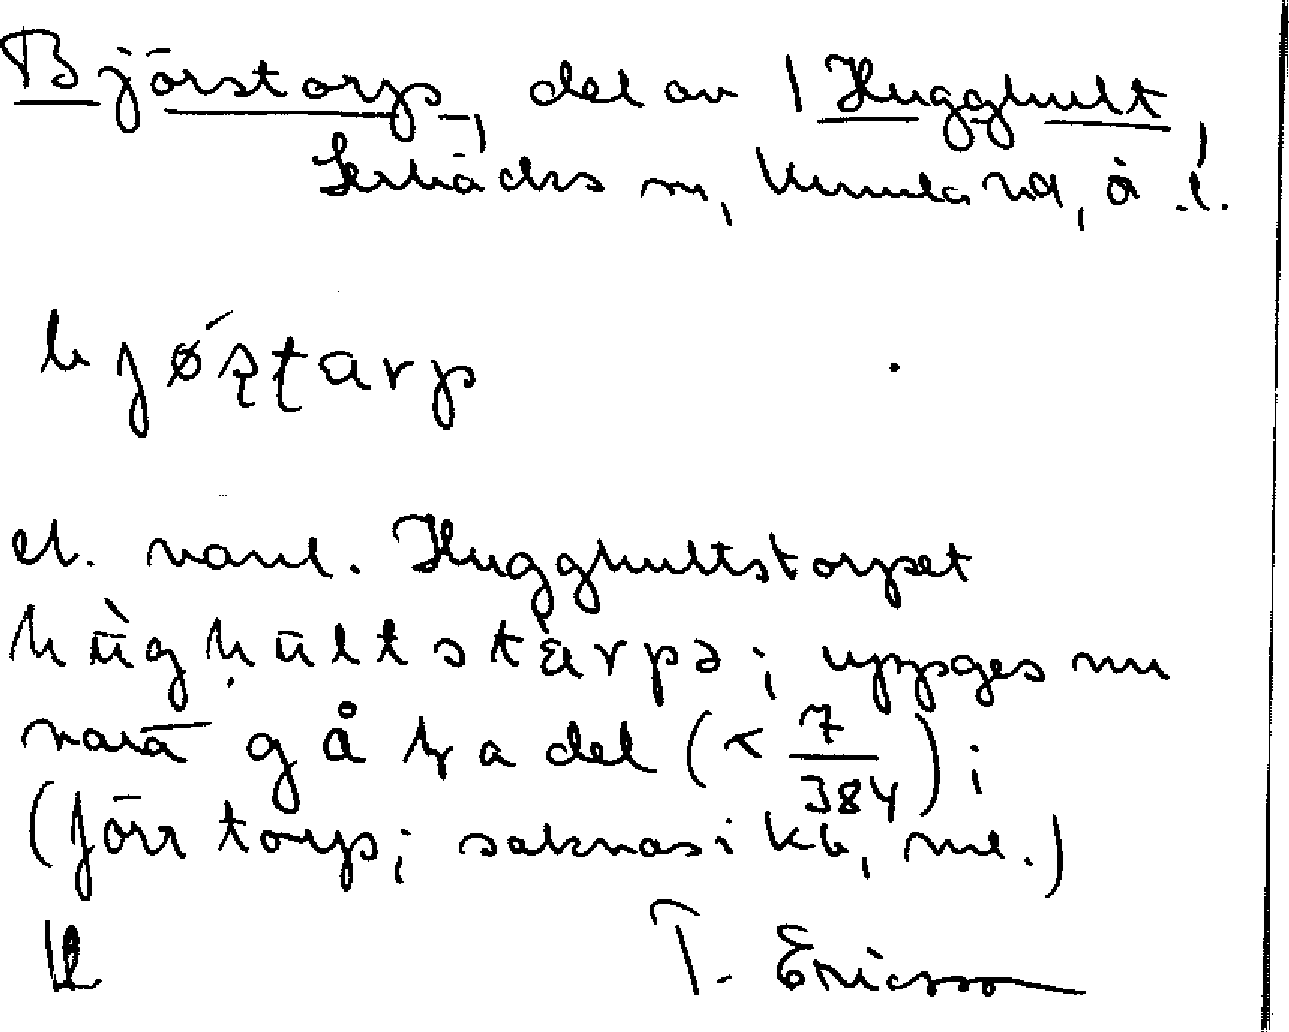 Björstorp, del av 1 Hugghult
Lerbäcks sn, Kumla hd, Ö.l.
bjǿsţarp
el. vanl. Hugghultstorpet
hùghultstarpə; uppges nu
vara gå tr a del (< 7/384);
(förr torp; saknas i kb, ml.)
T. Ericsson